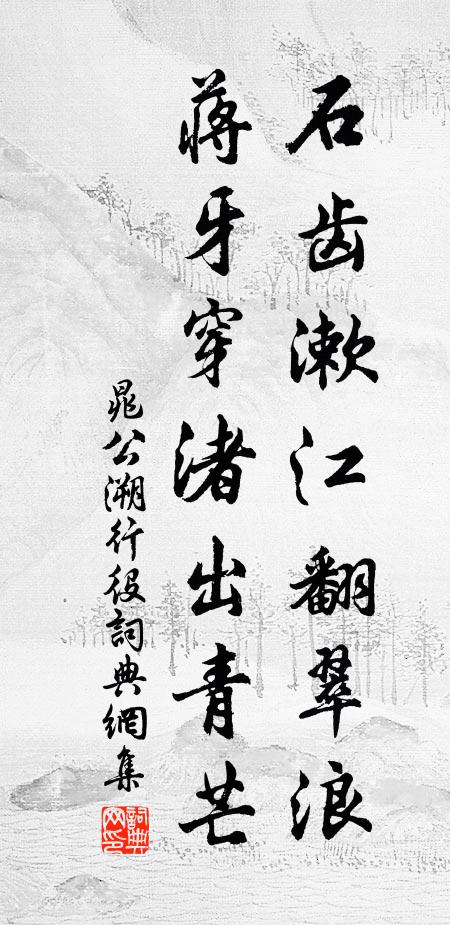 石齿漱江翻翠浪
蒋牙穿渚出青芒
晁公溯行役詞典網集
詞典网印